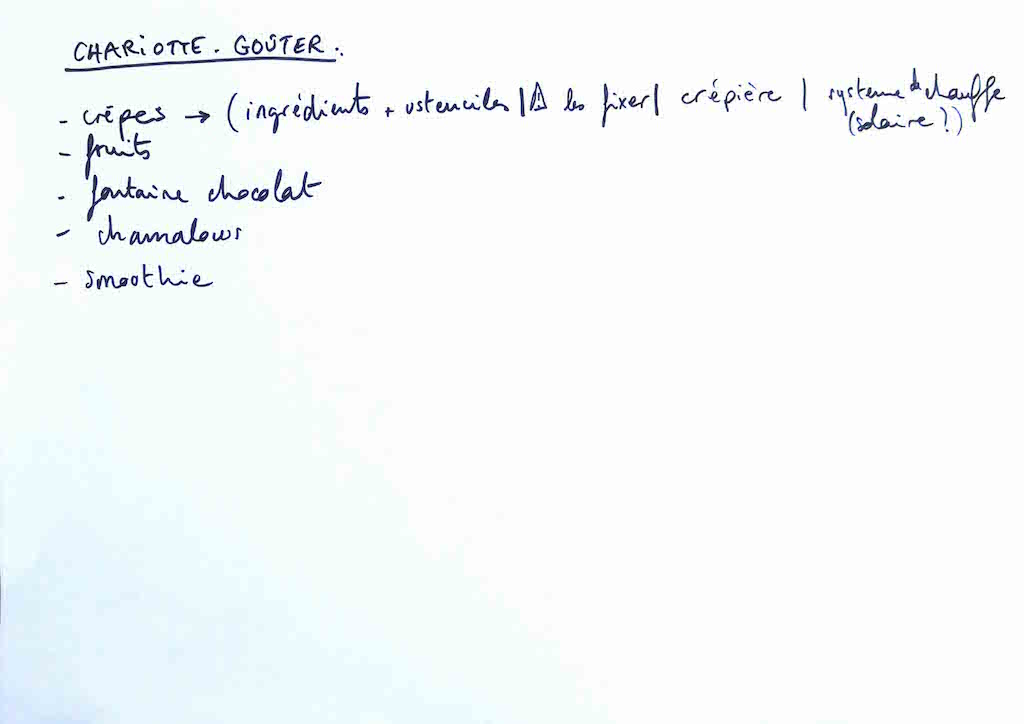 CHARiOTTE. GOÛTER.
- crêpes → (ingrédients + ustenciles | ⚠ les fixer | crépière | systeme de chauffe
(solaire ?)
- fruits
- fontaine chocolat
- chamalows
- smoothie